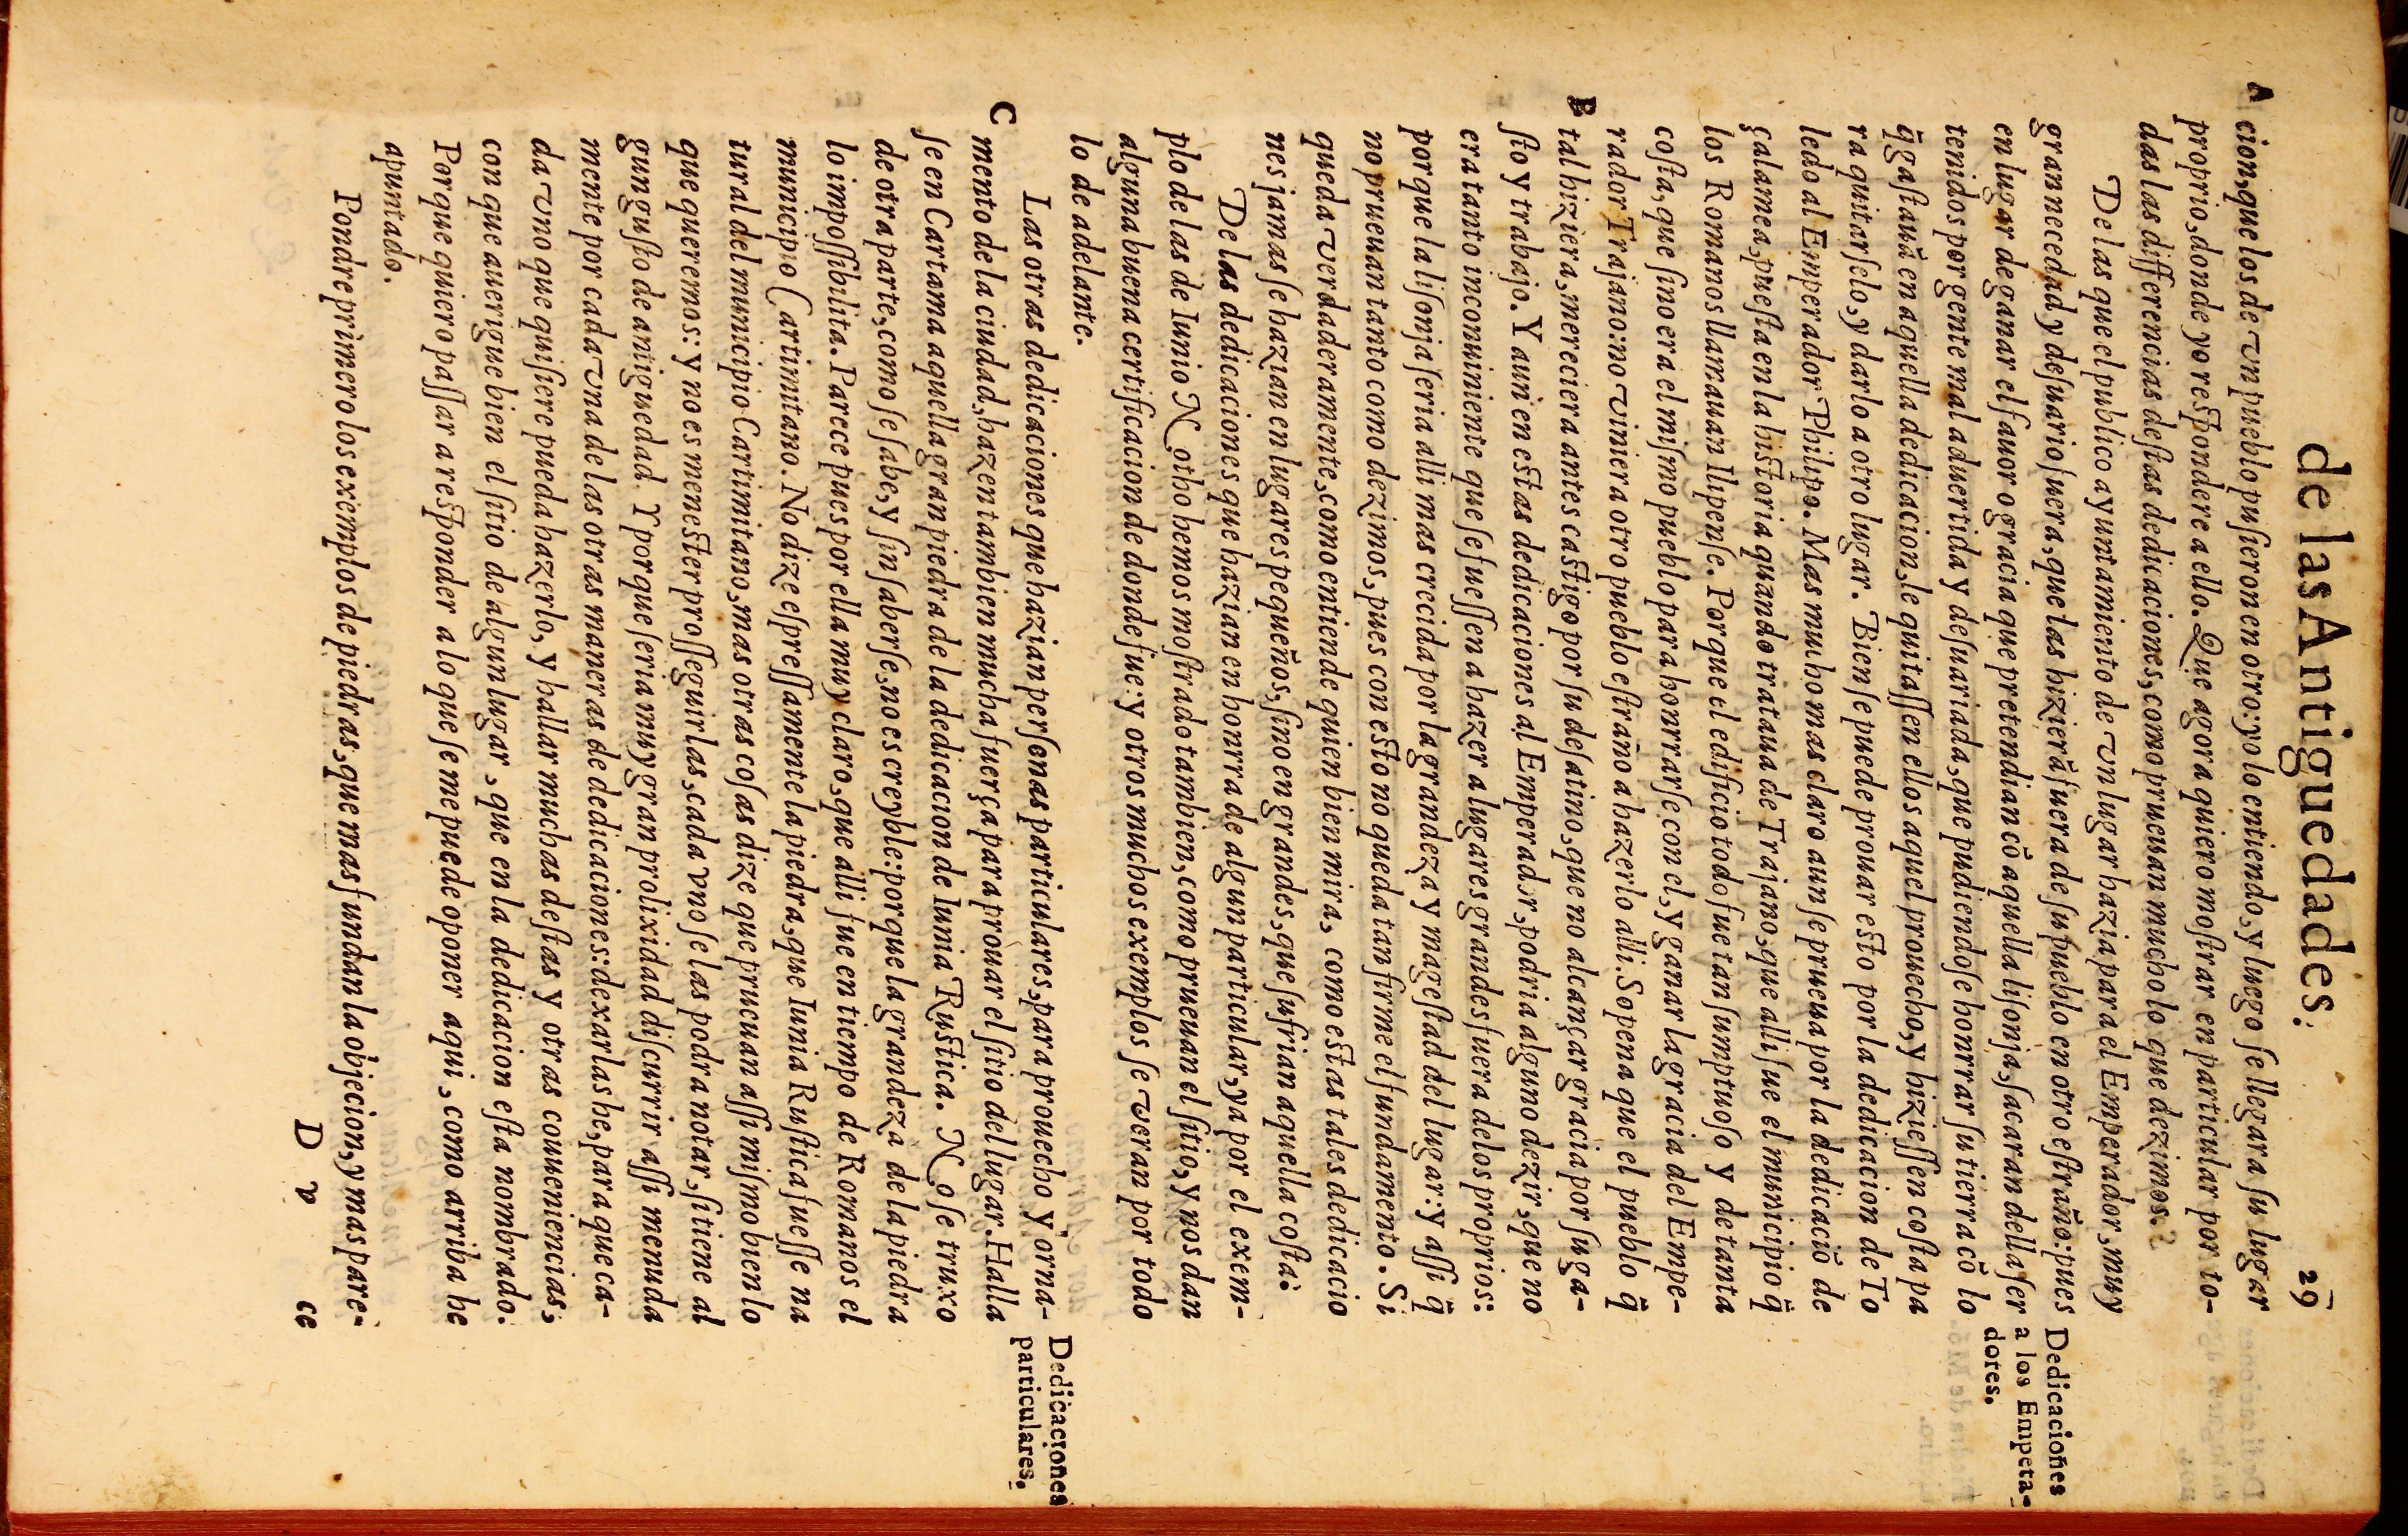 de las Antiguedades. 29
A cion, que los de vn pueblo puſieron en otro: yo lo entiendo, y luego ſe llegara ſu lugar
proprio, donde yo reſpondere a ello. Que agora quiero moſtrar en particular por to-
das las differencias deſtas dedicaciones, como prueuan mucho lo que dezimos.
De las que el publico ayuntamiento de vn lugar hazia para el Emperador, muy
gran necedad y deſuario fuera, que las hizierã fuera de ſu pueblo en otro eſtraño: pues
en lugar de ganar el fauor o gracia que pretendian cõ aquella liſonja, ſacaran della ſer
tenidos por gente mal aduertida y deſuariada, que pudiendoſe honrrar ſu tierra cõ lo
q̃ gaſtauã en aquella dedicacion, le quitaſſen ellos aquel prouecho, y hizieſſen coſta pa
ra quitarſelo, y darlo a otro lugar. Bien ſe puede prouar eſto por la dedicacion de To
ledo al Emperador Philipo. Mas muho mas claro aun ſe prueua por la dedicaciõ de
çalamea, pueſta en la hiſtoria quando trataua de Trajano, que alli fue el municipio q̃
los Romanos llamauan Ilipenſe. Porque el edificio todo fue tan ſumptuoſo y de tanta
coſta, que ſino era el miſmo pueblo para honrrarſe con el, y ganar la gracia del Empe-
rador Trajano: no viniera otro pueblo eſtraño a hazerlo alli. Sopena que el pueblo q̃
B tal hiziera, mereciera antes caſtigo por ſu deſatino, que no alcançar gracia por ſu ga-
ſto y trabajo. Y aun en eſtas dedicaciones al Emperador, podria alguno dezir, que no
era tanto inconuiniente que ſe fueſſen a hazer a lugares grandes fuera de los proprios:
porque la liſonja ſeria alli mas crecida por la grandeza y mageſtad del lugar: y aſſi q̃
no prueuan tanto como dezimos, pues con eſto no queda tan firme el fundamento. Si
queda verdaderamente, como entiende quien bien mira, como eſtas tales dedicacio
nes jamas ſe hazian en lugares pequeños, ſino en grandes, que ſufrian aquella coſta.
De las dedicaciones que hazian en honrra de algun particular, ya por el exem-
plo de las de Iunio Notho hemos moſtrado tambien, como prueuan el ſitio, y nos dan
alguna buena certificacion de donde fue: y otros muchos exemplos ſe veran por todo
lo de adelante.
Las otras dedicaciones que hazian perſonas particulares, para prouecho y orna-
C mento de la ciudad, hazen tambien mucha fuerça para prouar el ſitio del lugar. Halla
ſe en Cartama aquella gran piedra de la dedicacion de Iunia Ruſtica. No ſe truxo
de otra parte, como ſe ſabe, y ſin ſaberſe, no es creyble: porque la grandeza de la piedra
lo impoſſibilita. Parece pues por ella muy claro, que alli fue en tiempo de Romanos el
municipio Cartimitano. No dize eſpreſſamente la piedra, que Iunia Ruſtica fueſſe na
tural del municipio Cartimitano, mas otras coſas dize que prueuan aſſi miſmo bien lo
que queremos: y no es meneſter proſſeguirlas, cada vno ſe las podra notar, ſi tiene al
gun guſto de antiguedad. Y porque ſeria muy gran prolixidad diſcurrir aſſi menuda
mente por cada vna de las otras maneras de dedicaciones: dexarlas he, para que ca-
da vno que quiſiere pueda hazerlo, y hallar muchas deſtas y otras conueniencias,
con que auerigue bien el ſitio de algun lugar, que en la dedicacion eſta nombrado.
Porque quiero paſſar a reſponder a lo que ſe me puede oponer aqui, como arriba he
apuntado.
Pondre primero los exemplos de piedras, que mas fundan la objecion, y mas pare-
D v ce
Dedicaciones
a los Empera-
dores.
Dedicaciones
particulares.